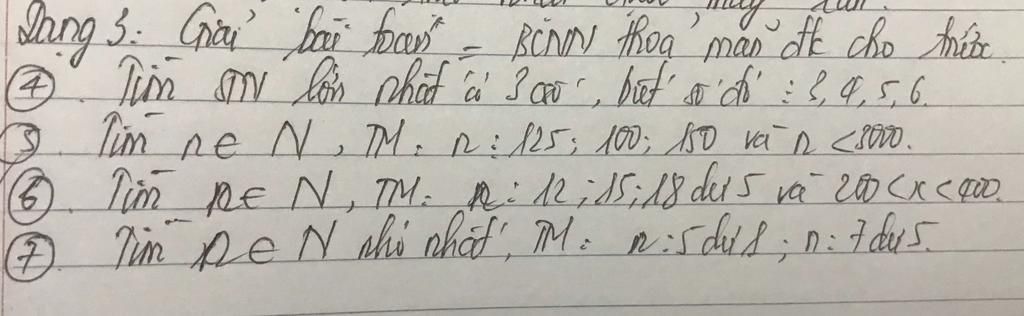 Dạng 3: Giải bài toán = BCNN thoả mãn đk cho trước.
④. Tìm STN lớn nhất có 3 cs, biết số đó ⋮ 3, 4, 5, 6.
5. Tìm n ∈ N, TM: n ⋮ 125; 100; 150 và n < 3000.
⑥. Tìm n ∈ N, TM: n : 12; 15; 18 dư 5 và 200 < x < 400.
⑦. Tìm n ∈ N nhỏ nhất, TM: n : 5 dư 1; n : 7 dư 5.